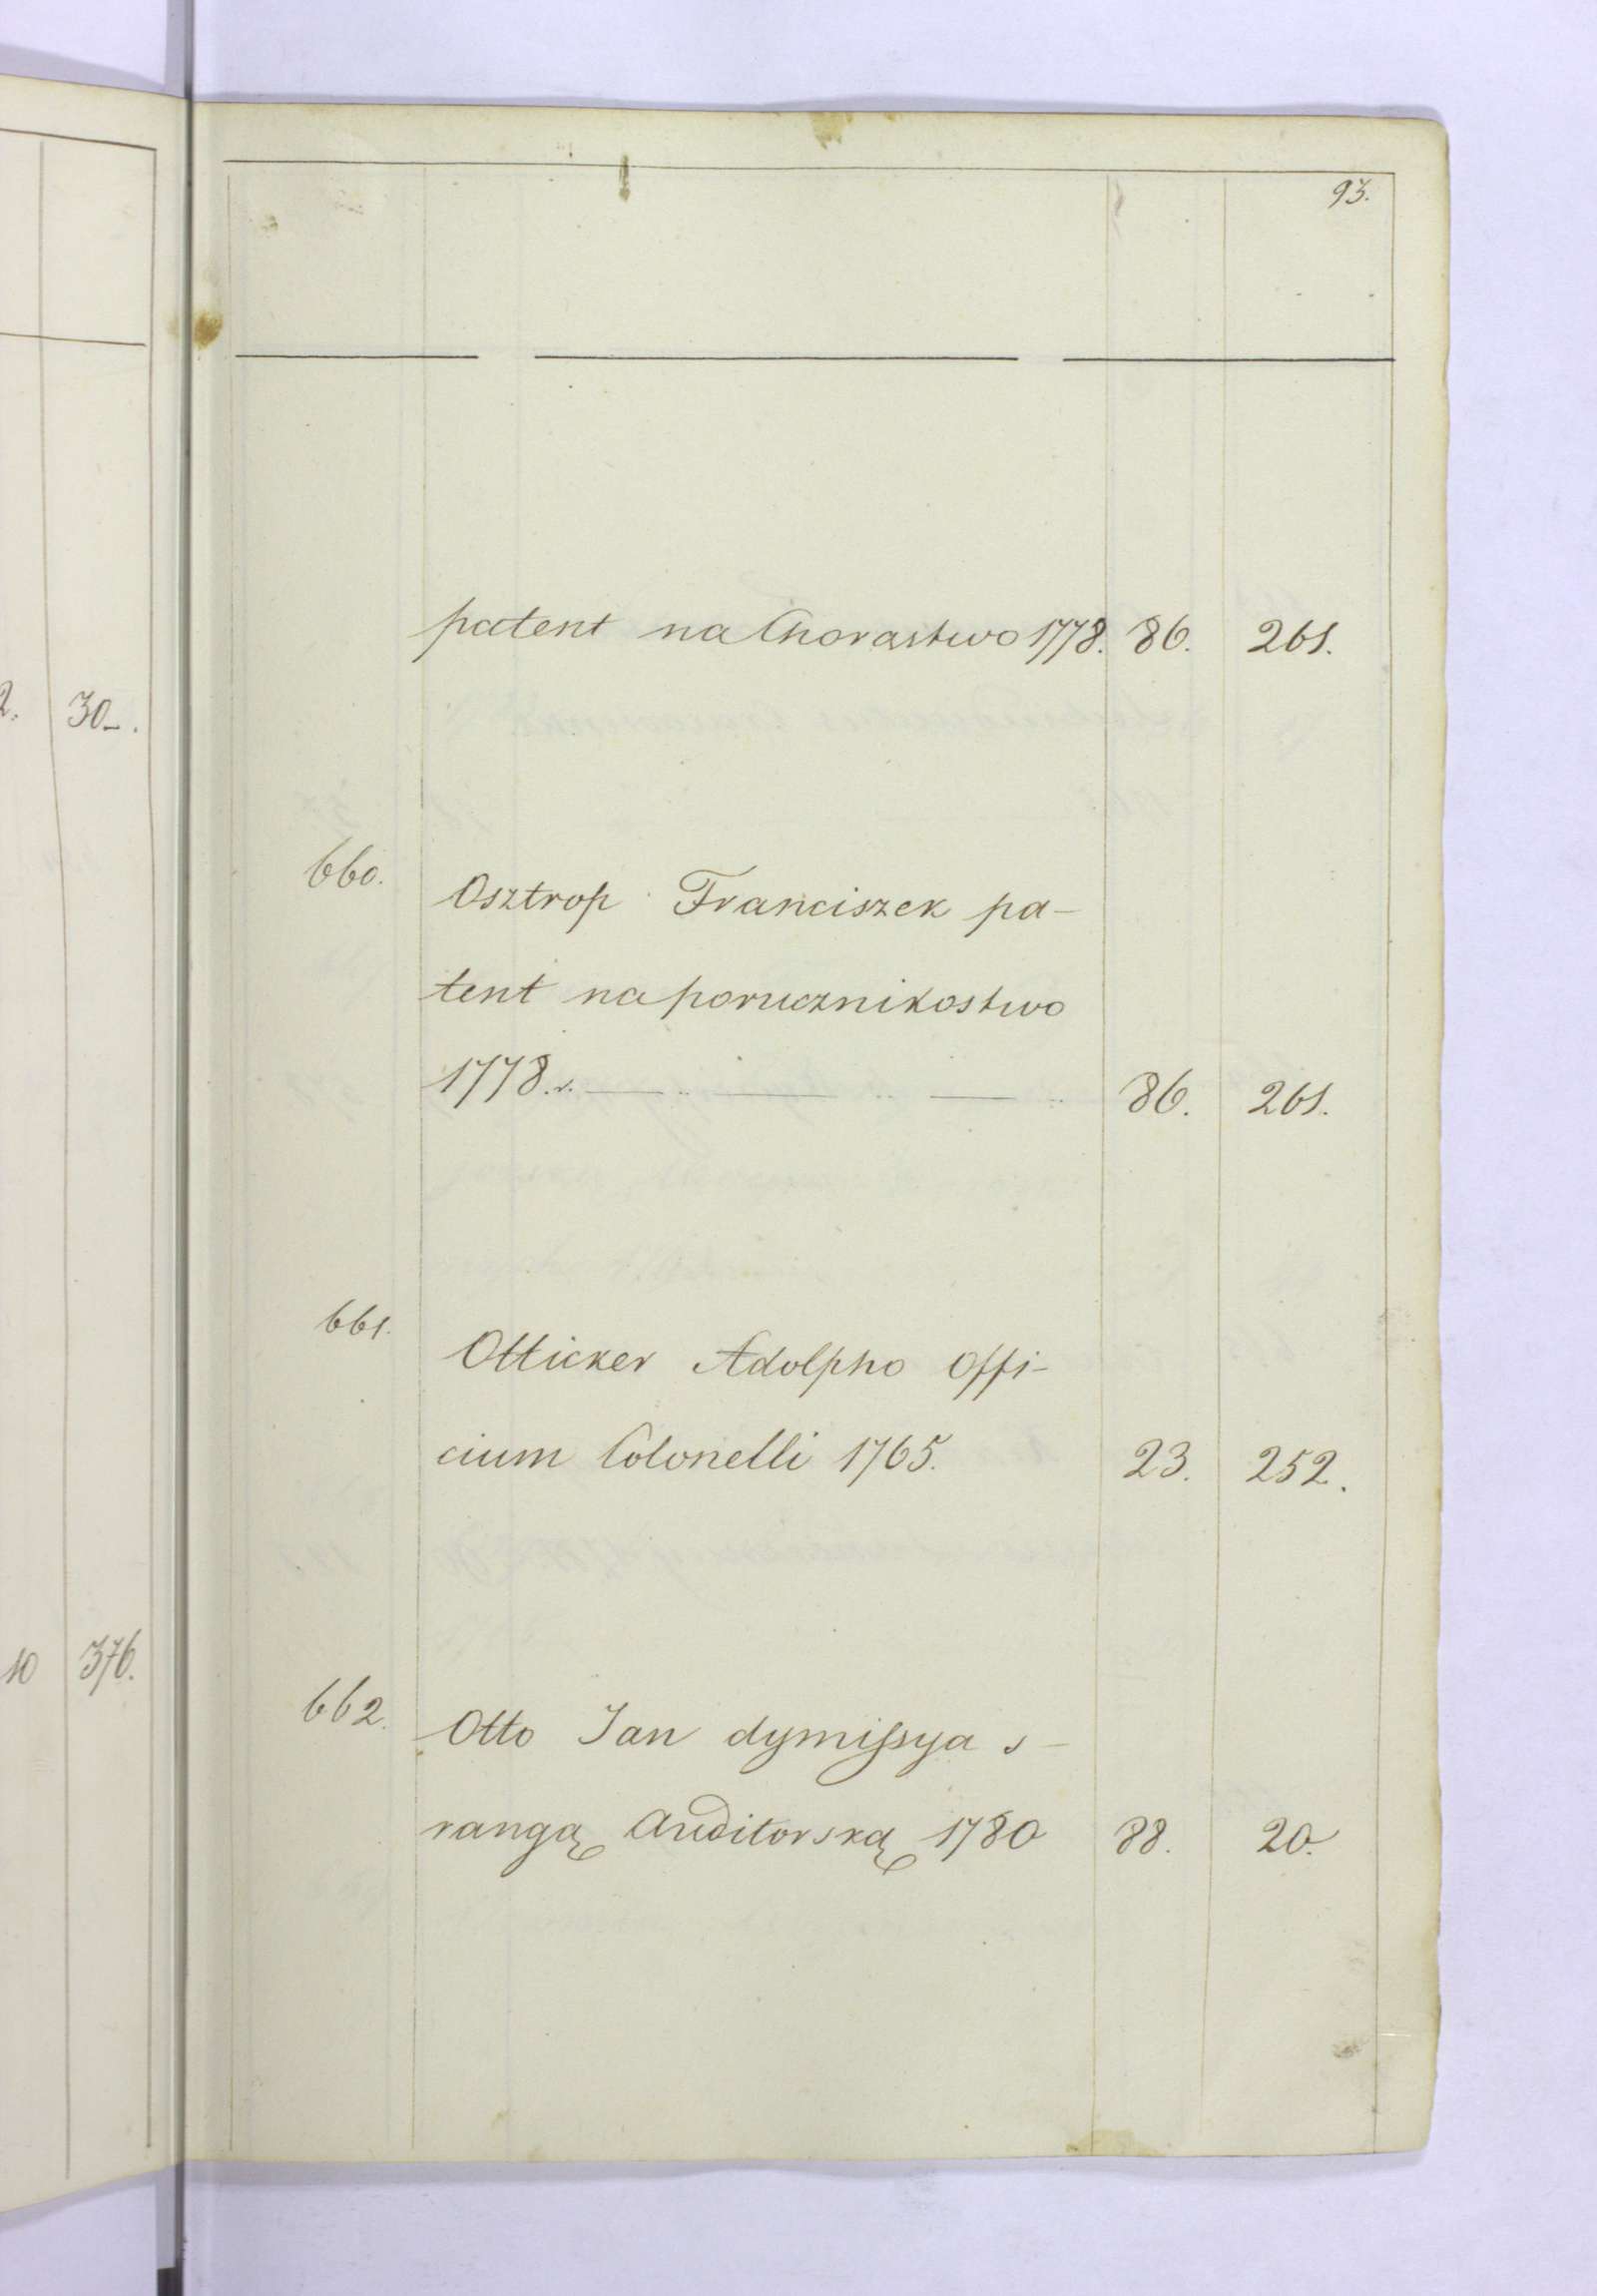 93.
patent na Chorąstwo 1778. 86. 261.
2. 30_.
660.
Osztrop Franciszek pa-
tent na porucznikostwo
1778.r. 86. 261.
661.
Otticker Adolpho Offi-
cium Colonelli 1765. 23. 252.
10 376.
662.
Otto Jan dymissya s
rangą Auditorską 1780 88. 20.